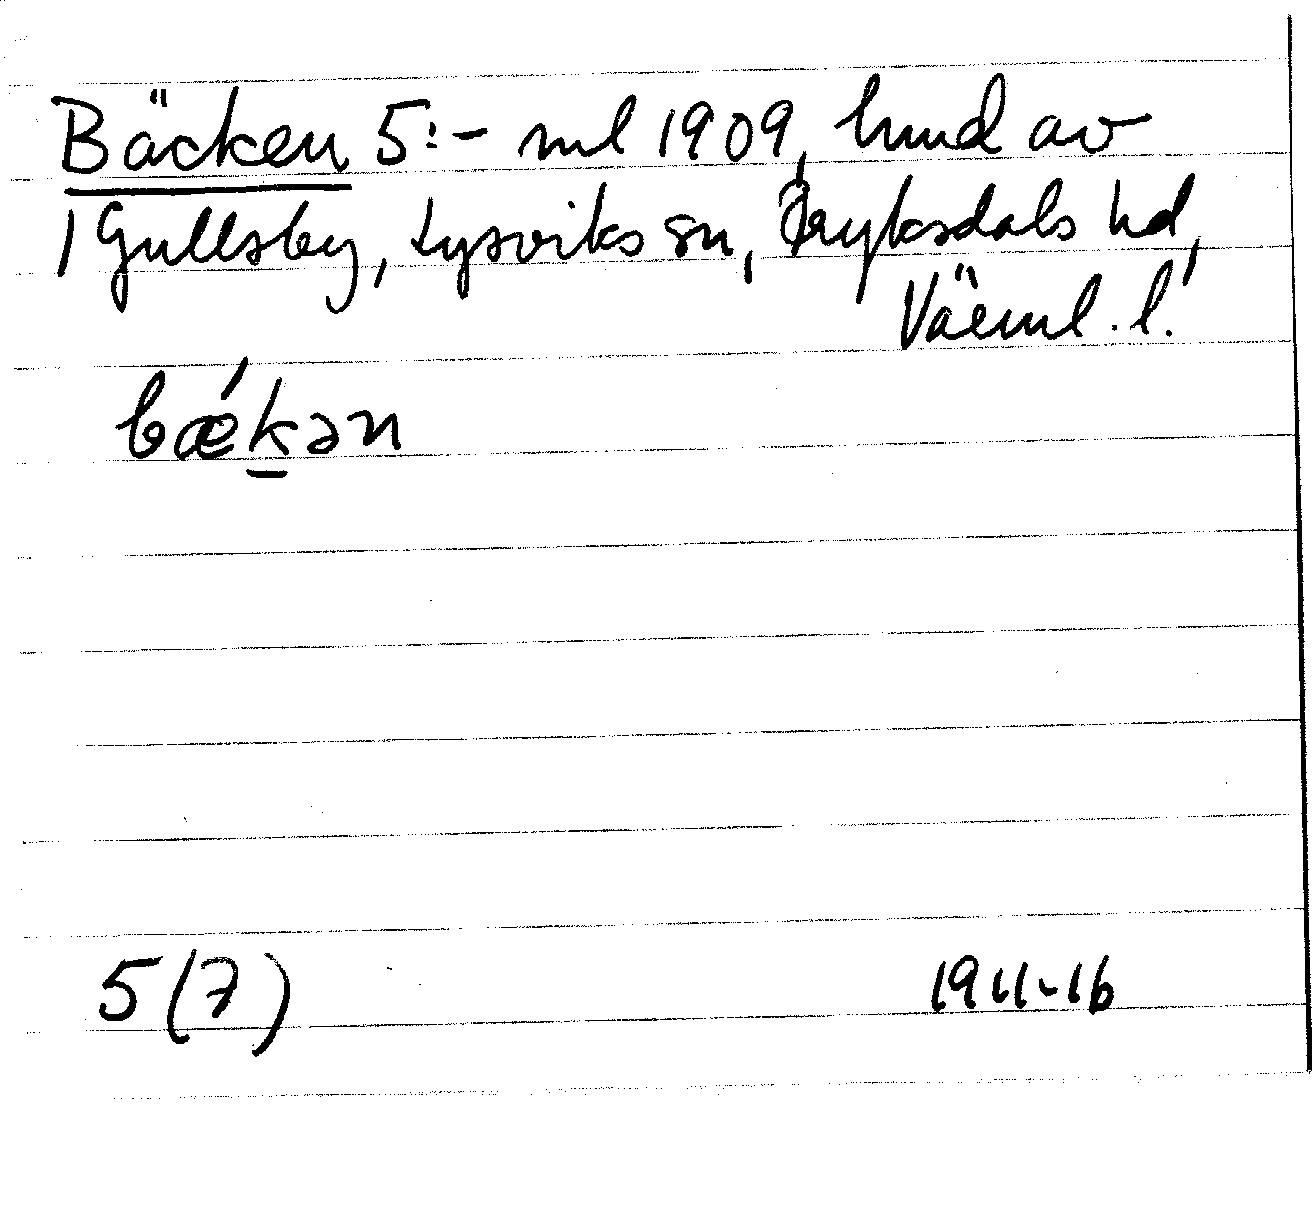 Bäcken 5:- ml 1909, hmd av
1 Gullsby, Lysviks sn, Fryksdals hd,
Värml. l.
bǽk̲ən
5(7) 1911-16